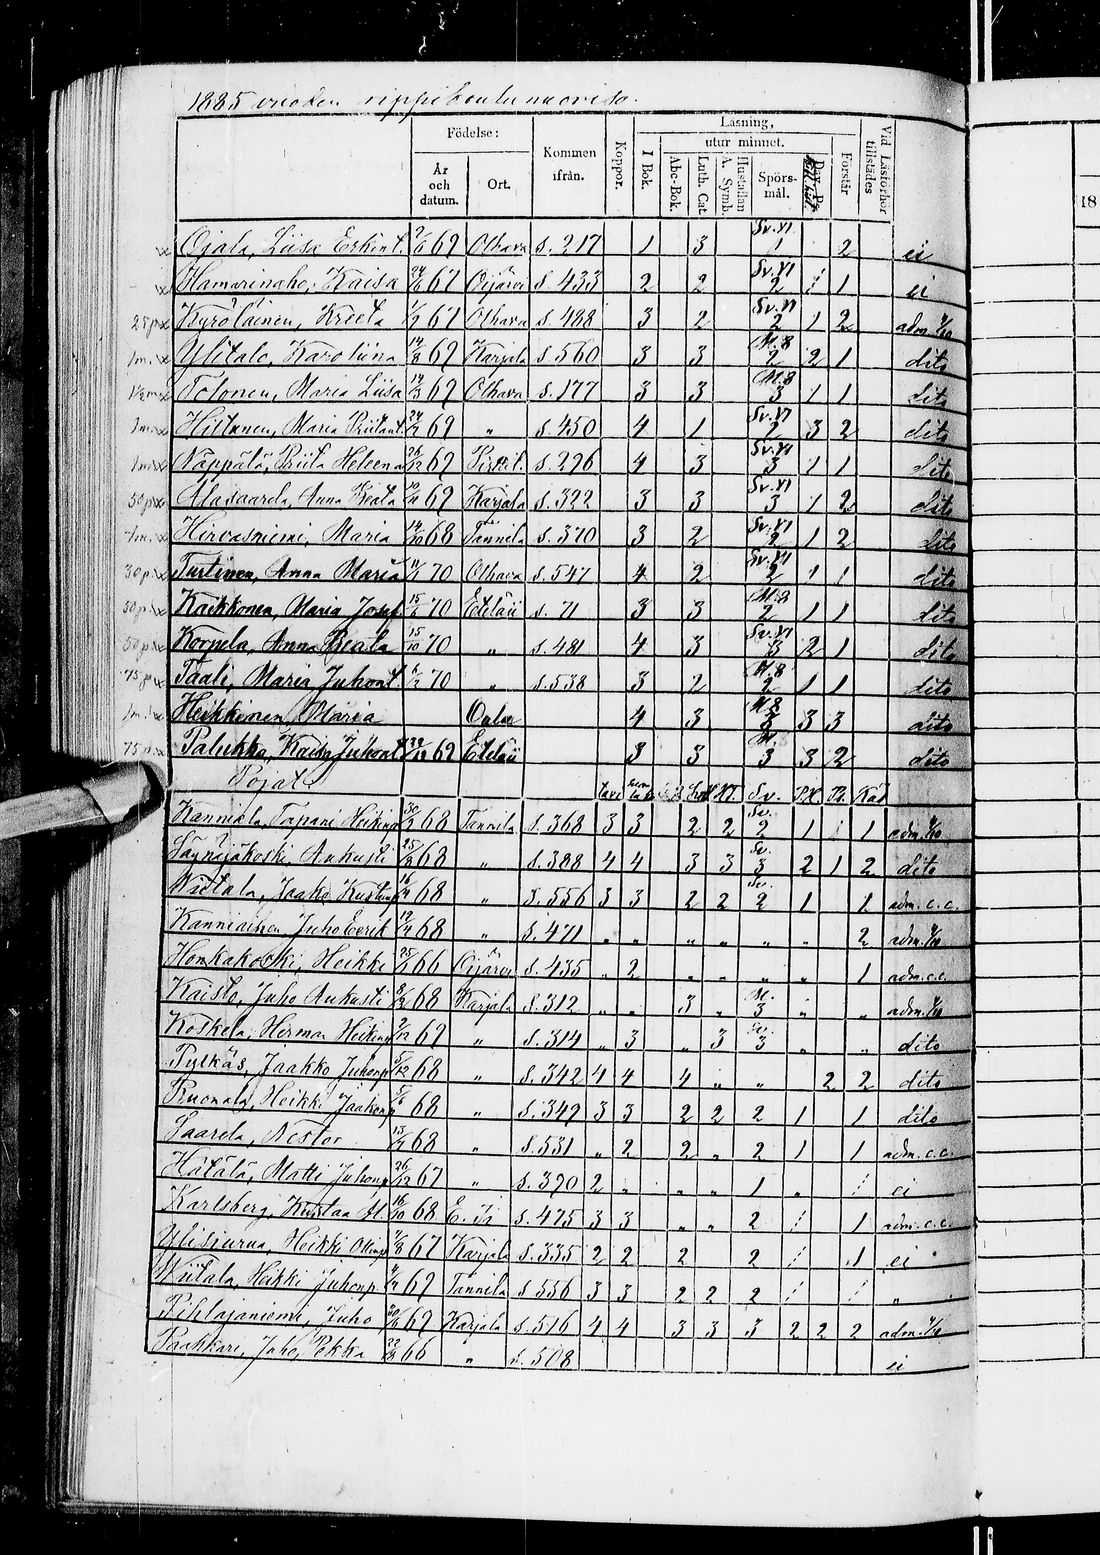 1885 vuoden rippikoulunuoriso.
Födelse: Kommen ifrån. Koppor. Läsning, Vid Läsförhör tillstädes
År och datum. Ort. I Bok. utur minnet. Förstår 18
Abc-Bok. Luth. Cat. Hustaflan A. Symb. Spörsmål. Dav. Ps.
Ojala, Liisa Erkint. 69 Olhava S. 217 1 3 Sv. VI 1 2 ei
Hamarinaho, Kaisa 67 Oijärvi S. 433 2 2 Sv. VI 2 1 1 ei
25 p. Kyröläinen, Kreeta 67 Olhava S. 488 3 2 Sv. VI 2 1 2 adm.
1 m. Ylitalo, Karoliina 69 Karjala S. 560 3 3 M. 8 2 2 1 dito
1½ m. Tolonen, Maria Liisa 69 Olhava S. 177 3 3 M. 8 3 1 1 dito
1 m. Hiltunen, Maria Priitant. 69 " S. 450 4 1 Sv. VI 2 3 2 dito
1 m. Näppälä, Priita Heleena 69 S. 296 4 3 Sv. VI 3 1 1 dito
50 p. Alasaarela, Anna Kreeta 69 Karjala S. 322 3 3 Sv. VI 3 1 2 dito
1 m. Hirvasniemi, Maria 68 Tannila S. 370 3 2 Sv. VI 2 1 2 dito
30 p. Turtinen, Anna Maria 70 Olhava S. 547 4 2 Sv. VI 2 1 1 dito
50 p. Kaikkonen, Maria Josef. 15/6 70 Eteläii S. 71 3 3 M. 8 2 1 1 dito
50 p. Korpela, Anna Beata 15/10 70 " S. 481 4 3 Sv. VI 3 2 1 dito
75 p. Paali, Maria Juhont. 70 " S. 538 3 2 M. 8 2 1 1 dito
1 m. Heikkinen, Maria Oulu 4 3 M. 8 3 3 3 dito
75 p. Palukka, Kaisa Juhont. 69 Eteläii 3 3 M. 3 3 2 dito
Pojat Sv. Käs
Kanniala, Tapani Heikinp. 68 Tannila S. 368 3 3 2 2 Sv. 2 1 1 adm.
Säynäjäkoski, Aukusti 68 " S. 388 4 4 3 3 Sv. 3 2 1 2 dito
Wiitala, Jaakko Kustinp. 68 " S. 556 3 3 2 2 Sv. 2 1 1 adm. c.c.
Kanniainen, Juho Eerik 68 " S. 471 " " " " " " 2 adm.
Honkakoski, Heikki 66 Oijärvi S. 435 " 2 " " " " 1 adm. c.c.
Kaisto, Juho Aukusti 68 Karjala S. 312 " " 3 " M. 3 " " adm.
Koskela, Herman Heikinp. 67 " S. 314 " 3 " 3 Sv. 3 " " dito
Pylkäs, Jaakko Juhonp. 68 " S. 342 4 4 4 " " 2 2 dito
Ruonala, Heikki Jaakonp. 68 " S. 349 3 3 2 2 2 1 1 dito
Saarela, Nestor 68 " S. 531 " 2 2 " 2 1 1 adm. c.c.
Hätälä, Matti Juhonp. 26/12 67 " S. 390 2 " " " 1 " 1 ei
Karlsberg, Kustaa H. 16/10 68 E. Ii S. 475 3 3 " " 2 1 1 adm. c.c.
Ylisiurua, Heikki Ollinp. 67 Karjala S. 335 2 2 2 2 1 1 ei
Wiitala, Heikki Juhonp. 69 Tannila S. 556 3 3 2 2 2 1 1 "
Pihlajaniemi, Juho 69 Karjala S. 516 4 4 3 3 3 2 2 2 adm.
Paakkari, Juho Pekka 66 " S. 508 ei